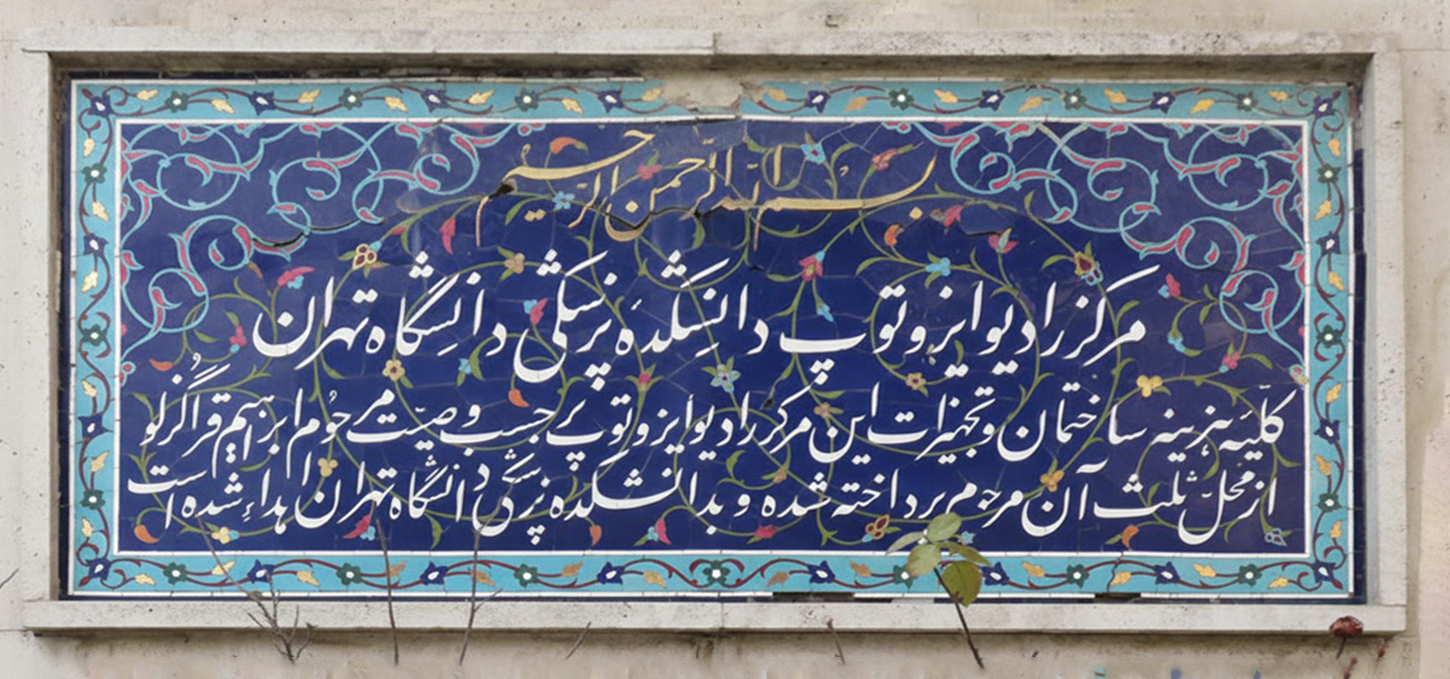 بسم الله الرحمن الرحیم
مرکز رادیو ایزوتوپ دانشکده پزشکی دانشگاه تهران
کلیّه هزینه ساختمان و تجهیزات این مرکز رادیو ایزوتوپ بر حسب وصیّت مرحوم ابراهیم قراگزلو
از محلّ ثلث آن مرحوم پرداخته شده و بدانشکده پزشکی دانشگاه تهران اهداء شده است